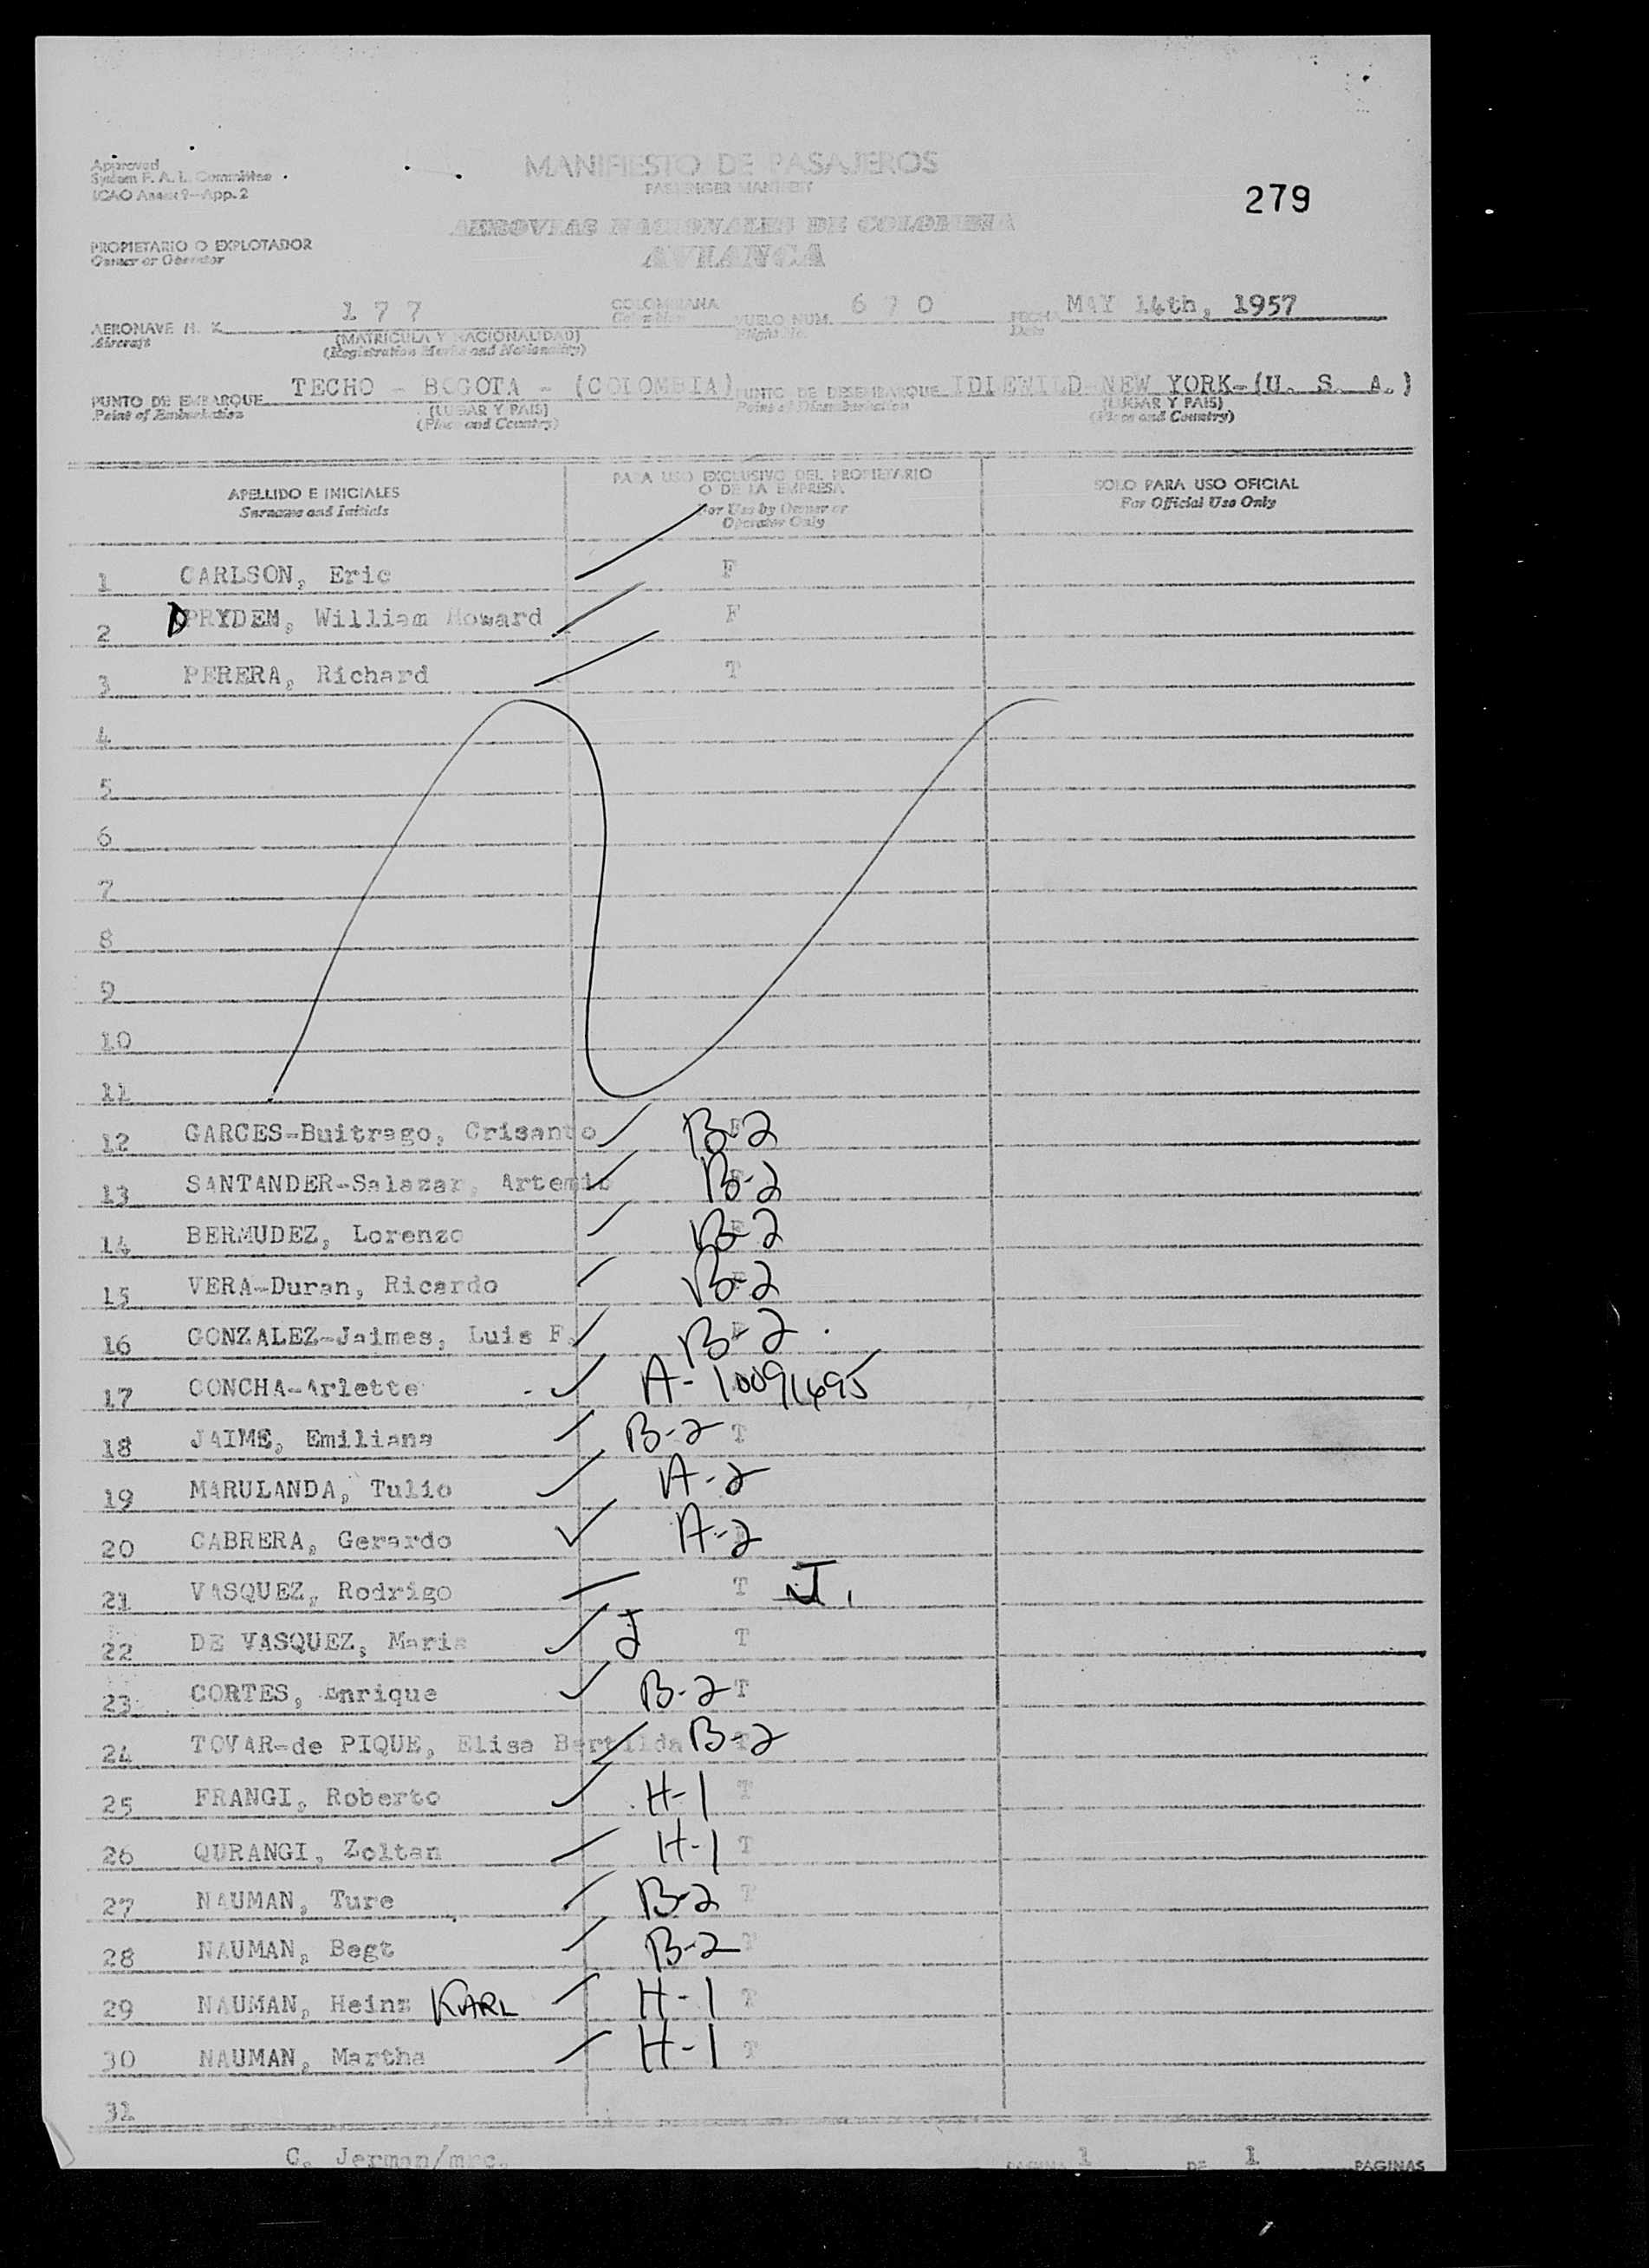 Approved
System F. A. L. Committee
ICAO Annex 9-App. 2
MANIFIESTO DE PASAJEROS
PASSENGER MANIFEST
279
AEROVIAS NACIONALES DE COLOMBIA
AVIANCA
PROPIETARIO O EXPLOTADOR
Owner or Operator
AERONAVE H. K. 177 COLOMBIANA VUELO NUM. 670 FECHA MAY 14th, 1957
Aircraft Colombian Flight No. Date
(MATRICULA Y NACIONALIDAD)
(Registration Marks and Nationality)
PUNTO DE EMBARQUE TECHO - BOGOTA - (COLOMBIA) PUNTO DE DESEMBARQUE IDLEWILD-NEW YORK-(U. S. A.)
Point of Embarkation Point of Disembarkation
(LUGAR Y PAIS) (LUGAR Y PAIS)
(Place and Country) (Place and Country)
APELLIDO E INICIALES
Surname and Initials
PARA USO EXCLUSIVO DEL PROPIETARIO
O DE LA EMPRESA
For Use by Owner or
Operator Only
SOLO PARA USO OFICIAL
For Official Use Only
1 CARLSON, Eric F
2 DPRYDEM, William Howard F
3 PERERA, Richard T
4
5
6
7
8
9
10
11
12 GARCES-Buitrago, Crisanto B-2
13 SANTANDER-Salazar, Artemio B-2
14 BERMUDEZ, Lorenzo B-2
15 VERA-Duran, Ricardo B-2
16 GONZALEZ-Jaimes, Luis F. B-2
17 CONCHA-Arlette A-10091695
18 JAIME, Emiliana B-2 T
19 MARULANDA, Tulio A-2
20 CABRERA, Gerardo A-2
21 VASQUEZ, Rodrigo T J.
22 DE VASQUEZ, Maria J T
23 CORTES, Enrique B-2 T
24 TOVAR-de PIQUE, Elisa Bertilda B-2 T
25 FRANGI, Roberto H-1 T
26 QURANGI, Zoltan H-1 T
27 NAUMAN, Ture B-2 T
28 NAUMAN, Begt B-2 T
29 NAUMAN, Heinz KARL H-1 T
30 NAUMAN, Martha H-1 T
31
C. Jerman/mrc. PAGINA 1 DE 1 PAGINAS